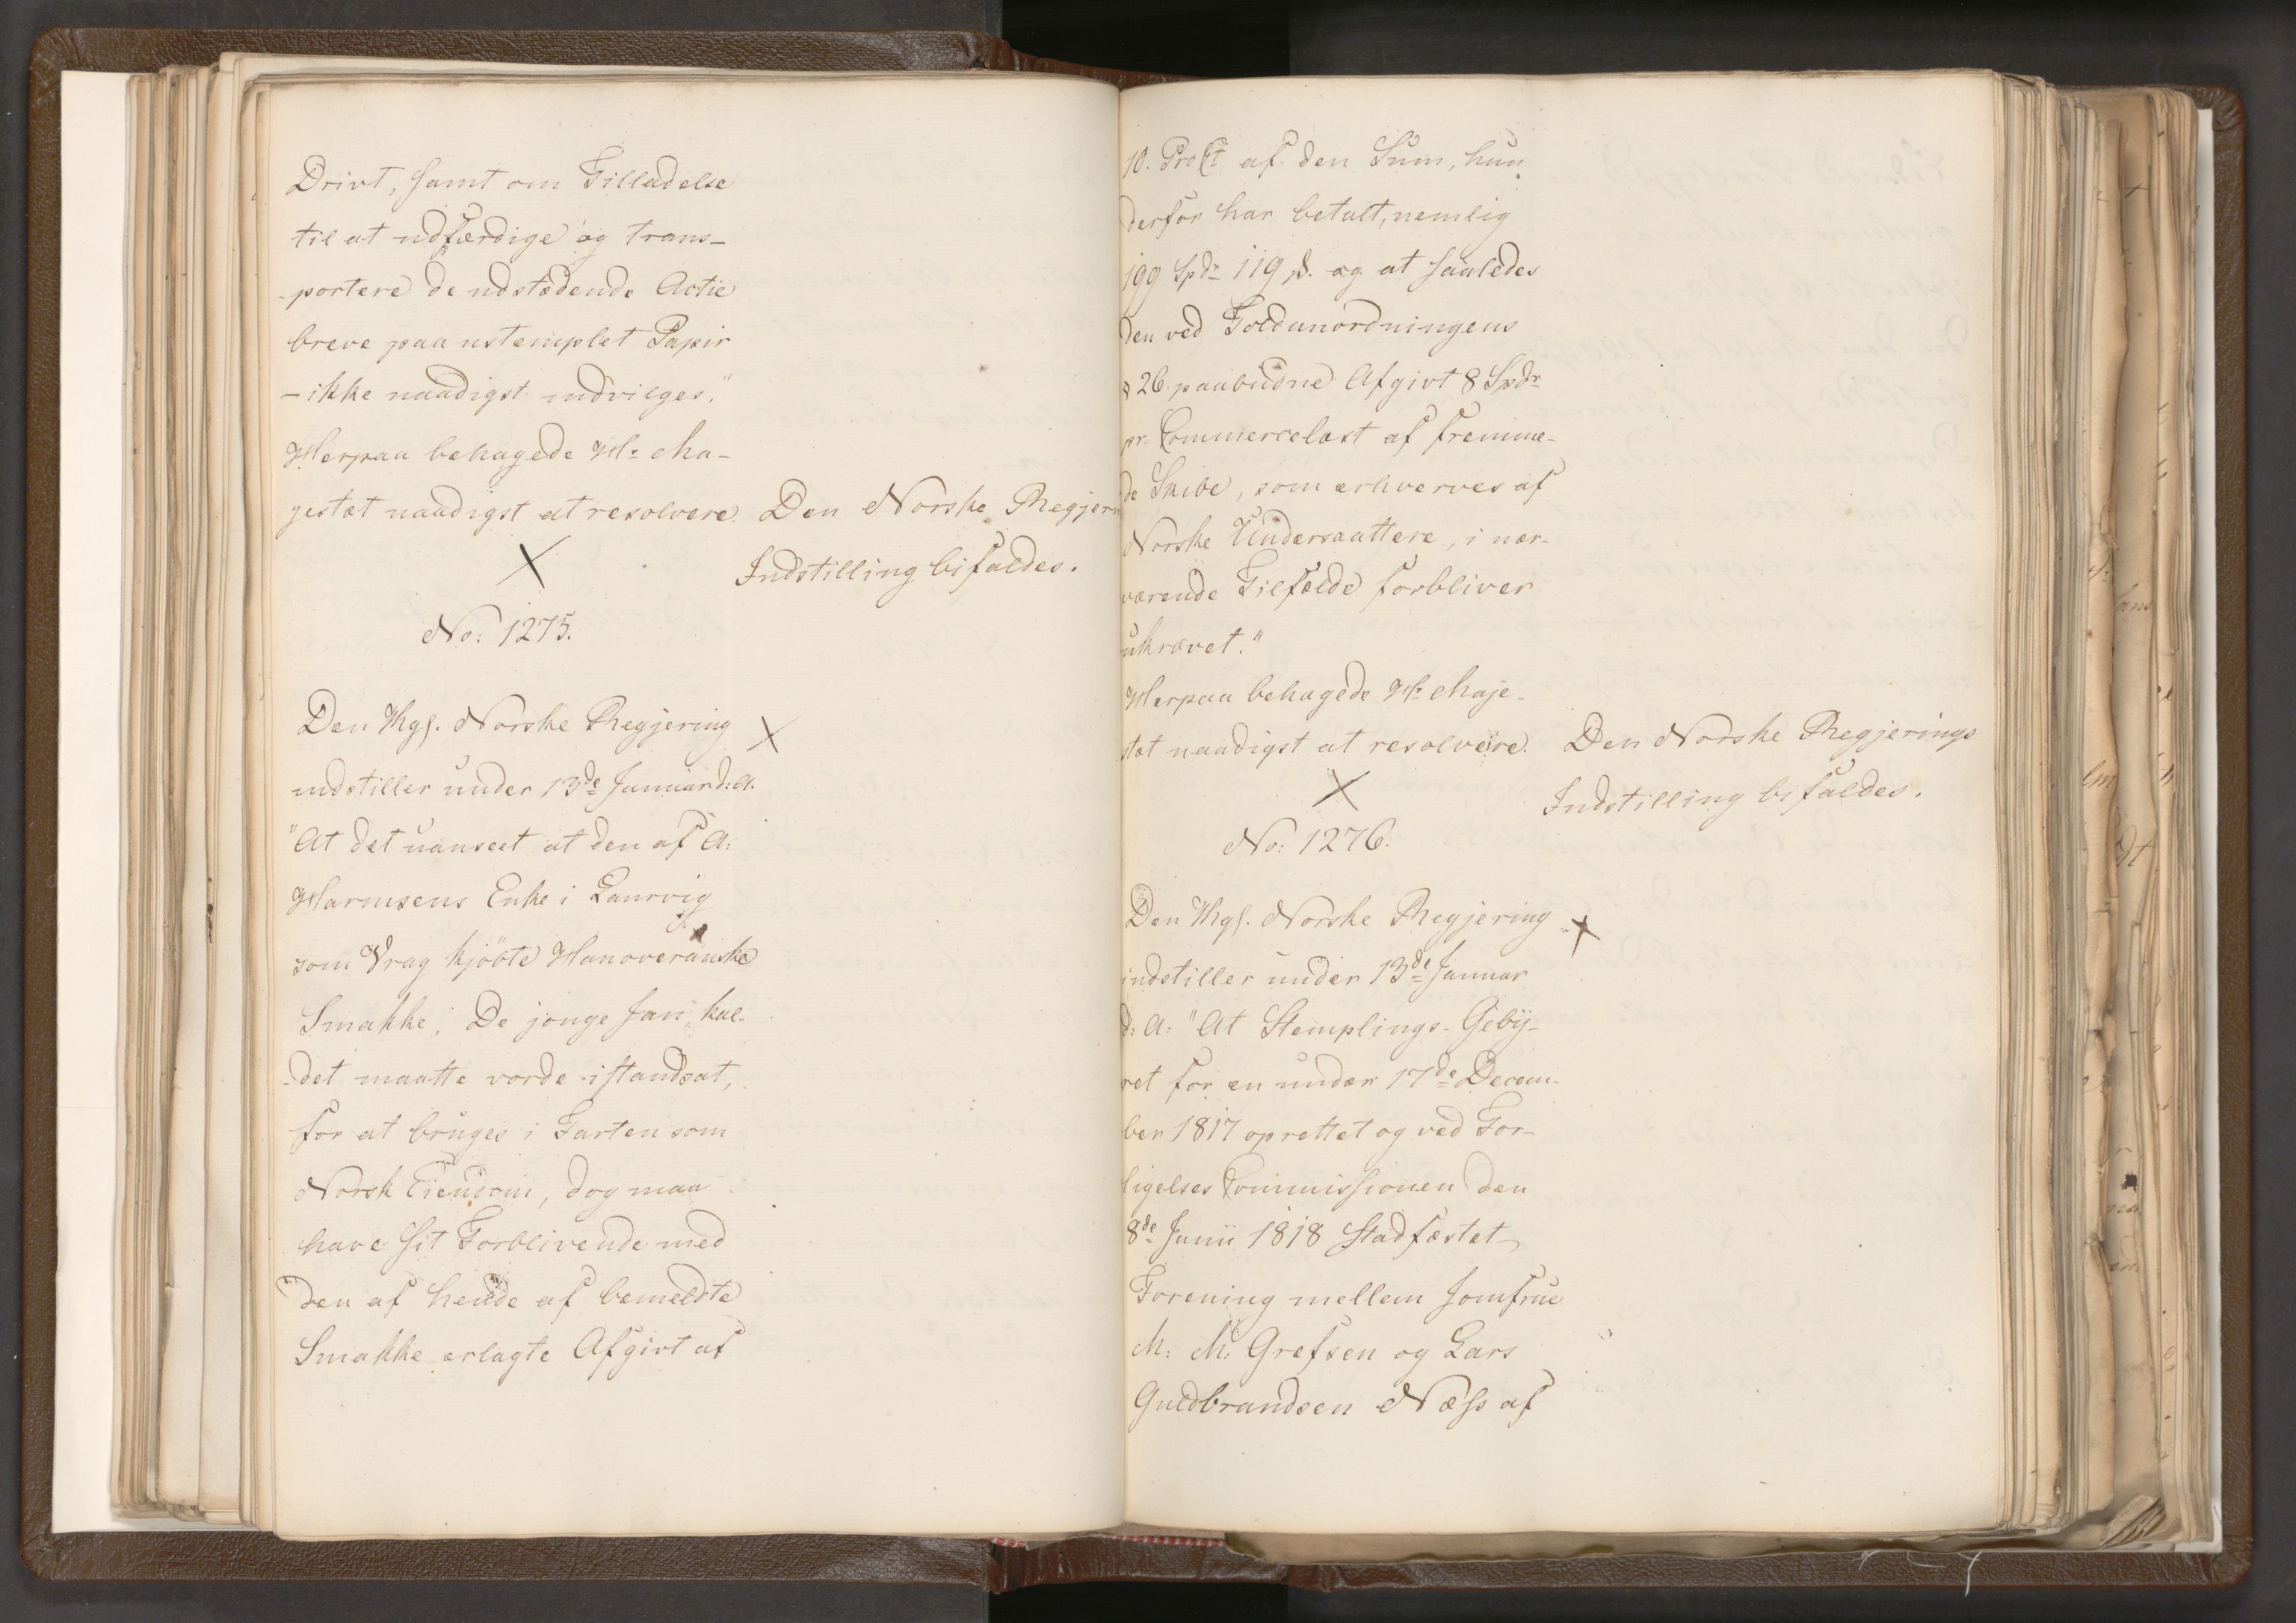 Drivt, samt om Tilladelse
til at udfærdige og trans-
-portere de udstædende Actie
breve paa ustemplet Papir
- ikke naadigst indvilges."
Herpaa behagede Hs Ma-
jestæt naadigst at resolvere.
Den Norske Regjer
Indstilling bifaldes.
No: 1275.
Den Kgl. Norske Regjering
indstiller under 13de Januar d: A.
"At det uanseet at den af A:
Harmsens Enke i Laurvig
som Vrag kjöbte Hanoveranske
Smakke, De jonge Jan, kal-
-det maatte vorde istandsat,
for at bruges i Farten som
Norsk Eiendom, dog maa
have sit Forblivende med
den af hende af bemeldte
Smakke erlagte Afgivt af
10. ProCt af den Sum, hun
derfor har betalt, nemlig
199 Spdr 119 s. og at saaledes
den ved Toldanordningens
§ 26 paabudne Afgivt 8 Spdr
pr. Commercelæst af fremme-
de Skibe, som erhverves af
Norske Undersaattere, i nær-
værende Tilfælde forbliver
ukrævet."
Herpaa behagede Hs Maje-
stæt naadigst at resolvere.
Den Norske Regjerings
Indstilling bifaldes.
No: 1276.
Den Kgl. Norske Regjering
indstiller under 13de Januar
d: A: "At Stemplings-Geby-
ret for en under 17de Decem-
ber 1817 oprettet og ved For-
ligelses Commissionen den
8de Junii 1818 stadfæstet
Forening mellem Jomfrue
M: M: Grefsen og Lars
Guldbrandsen Næss af